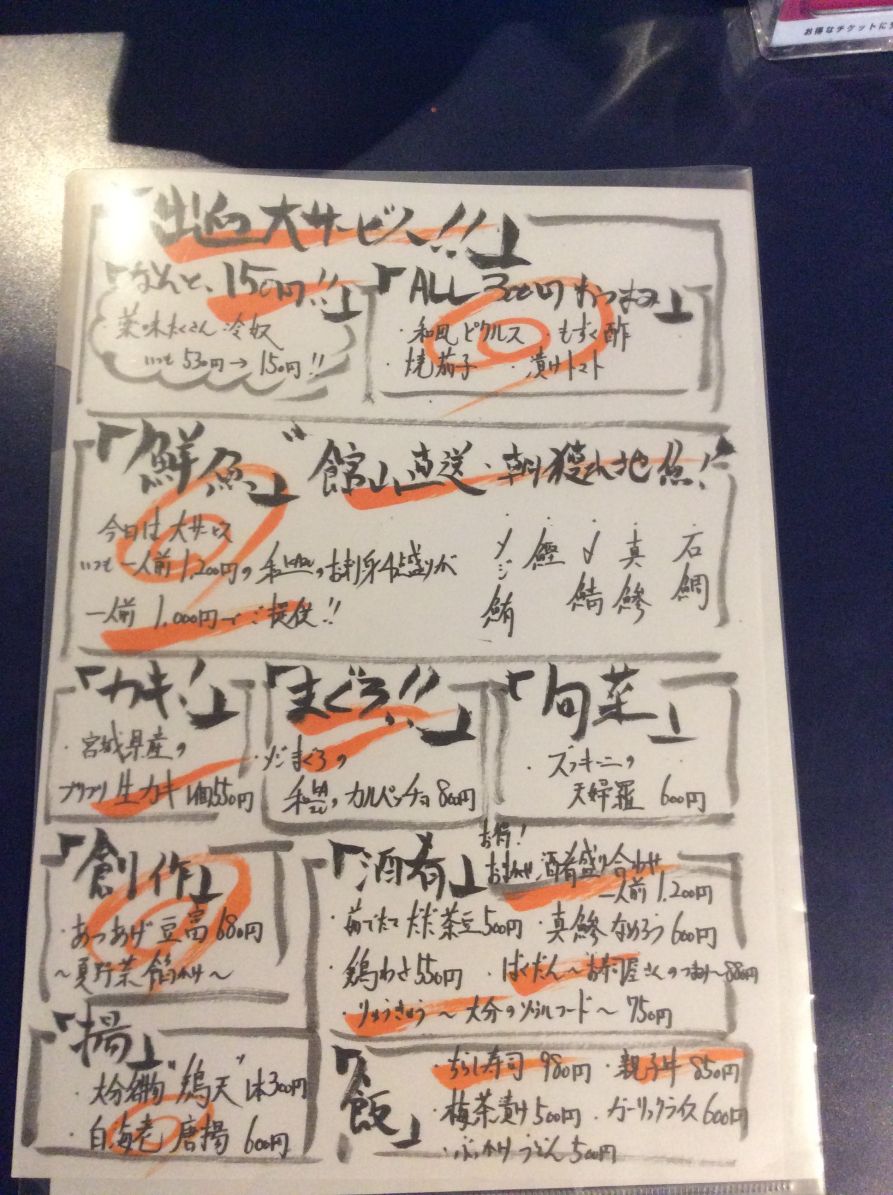 お得なチケットに
「出血大サービス!!」
「なんと、150円!!」
・薬味たくさん冷奴
いつも530円→150円!!
「ALL 300円おつまみ」
・和風ピクルス ・もずく酢
・焼茄子 ・漬けトマト
「鮮魚」"館山直送・朝獲れ地魚!"
今日は大サービス
いつも一人前1,200円の
のお刺身4点盛りが
一人前1,000円でご提供!!
・石鯛
・真鯵
・〆鯖
・鰹
・メジ鮪
「カキ!」
・宮城県産の
プリプリ生カキ 1個550円
「まぐろ!!」
・メジまぐろの
カルパッチョ 800円
「旬菜」
・ズッキーニの
天婦羅 600円
「創作」
・あつあげ豆富 680円
～夏野菜餡かけ～
「酒肴」
お得!
おまかせ酒肴盛り合わせ
一人前1,200円
・茹でたて だだ茶豆500円 ・真鯵なめろう600円
・鶏わさ550円 ・ばくだん～お寿司屋さんのつまみ～880円
・りゅうきゅう～大分のソウルフード～750円
「揚」
・大分名物"鶏天"1本300円
・白海老唐揚 600円
「飯」
・ちらし寿司980円 ・親子丼850円
・梅茶漬け500円 ・ガーリックライス600円
・ぶっかけうどん500円